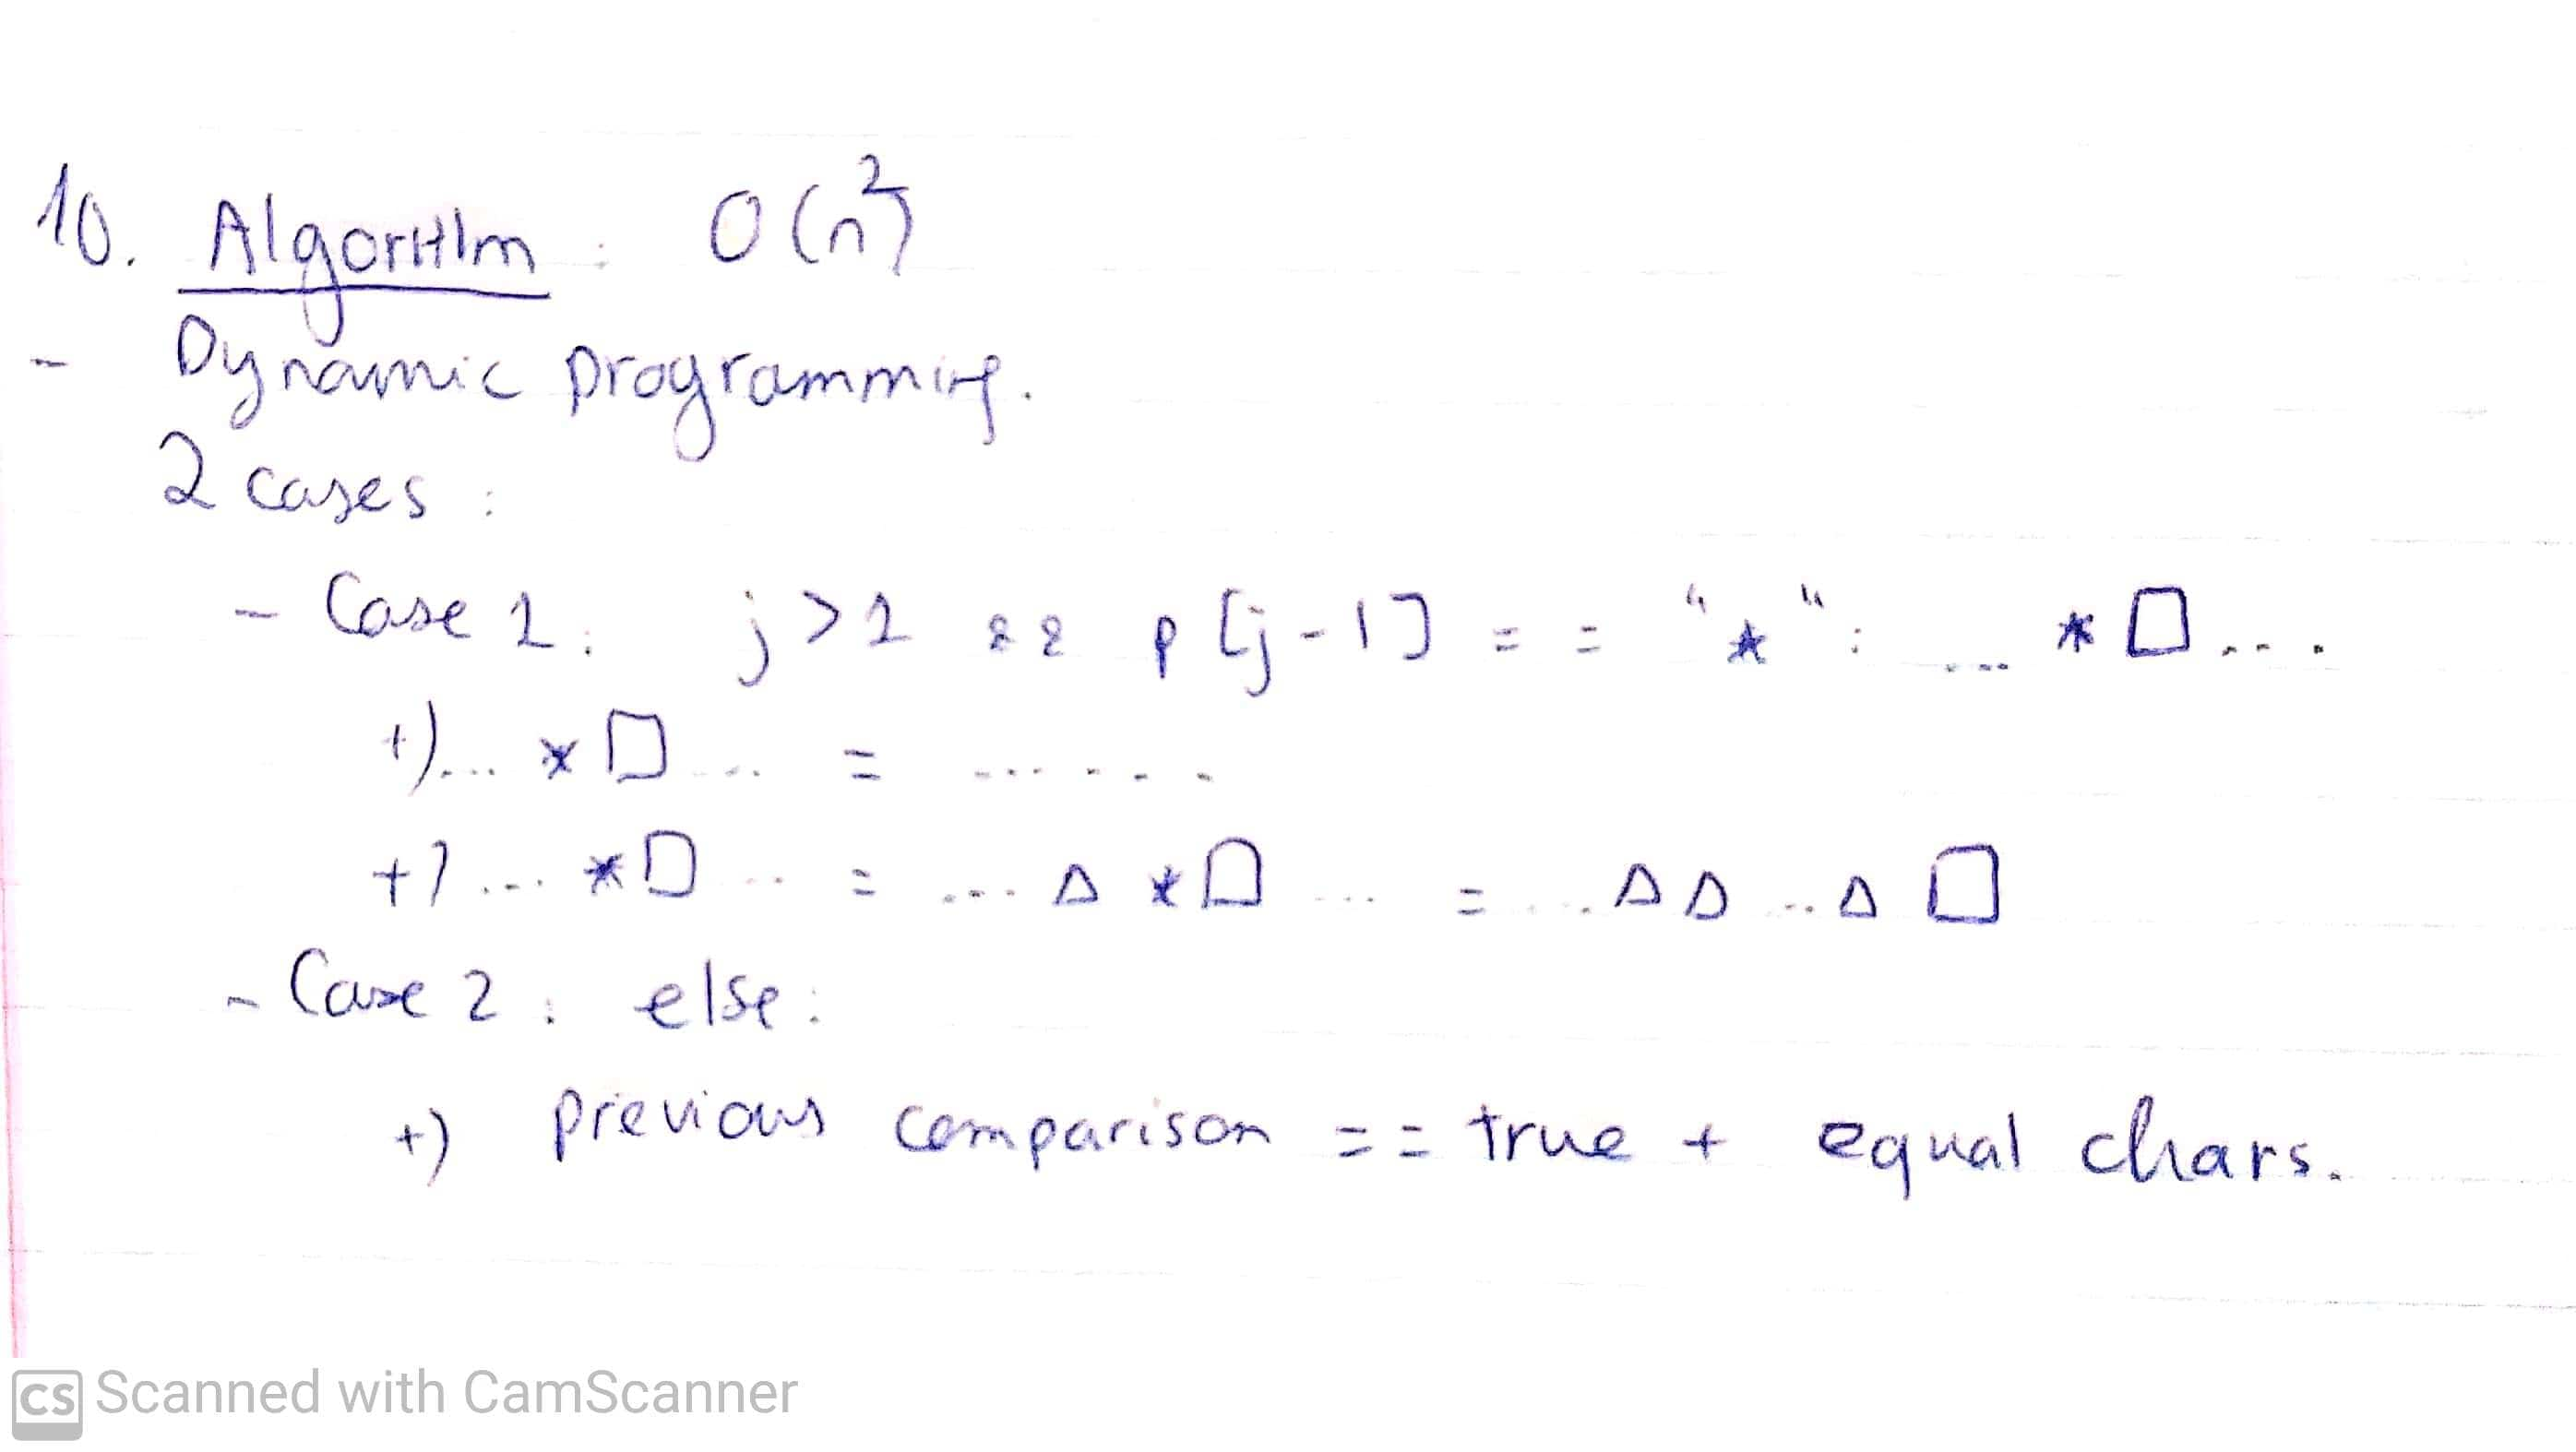 10. Algorithm : O(n²)
- Dynamic programming.
2 cases :
- Case 1 : j > 1 && p[j-1] == "*" : ... *□ ...
+) ... *□ ... = ... ...
+) ... *□ ... = ... △ *□ ... = ... △△ ... △□
- Case 2 : else :
+) previous comparison == true + equal chars.
CS Scanned with CamScanner